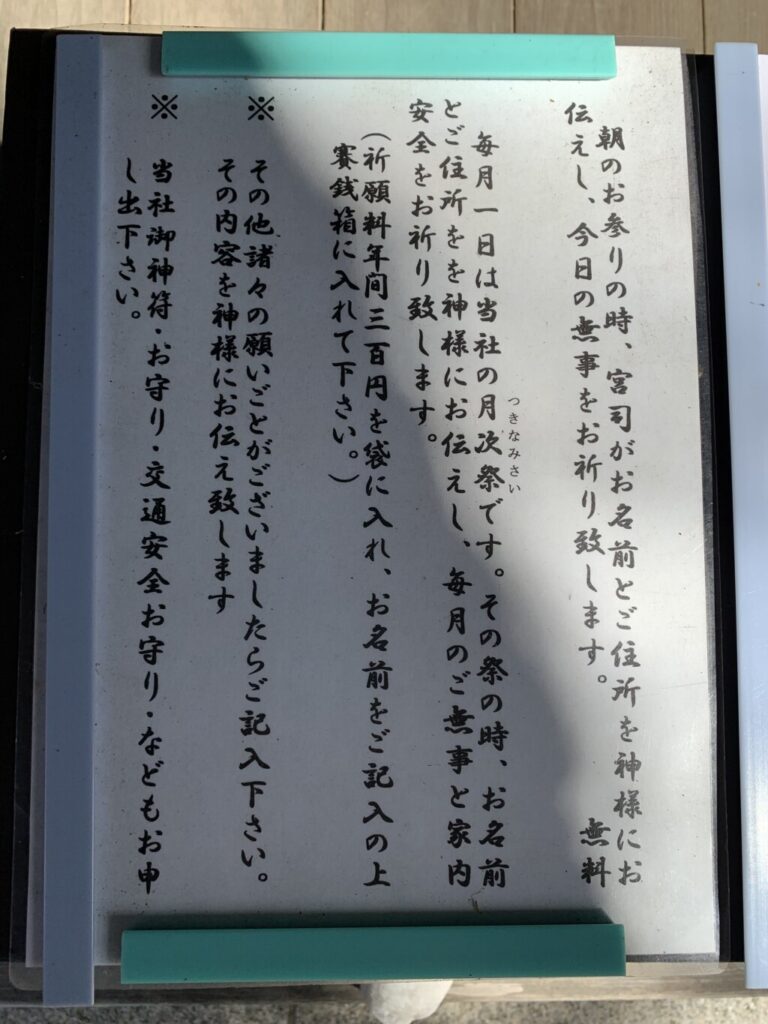 朝のお参りの時、宮司がお名前とご住所を神様にお
伝えし、今日の無事をお祈り致します。 無料
毎月一日は当社の月次祭です。その祭の時、お名前
つきなみさい
とご住所をを神様にお伝えし、毎月のご無事と家内
安全をお祈り致します。
(祈願料年间三百円を袋に入れ、お名前をご記入の上
賽銭箱に入れて下さい。)
※ その他諸々の願いごとがございましたらご記入下さい。
その内容を神様にお伝え致します
※ 当社御神符・お守り・交通安全お守り・などもお申
し出下さい。